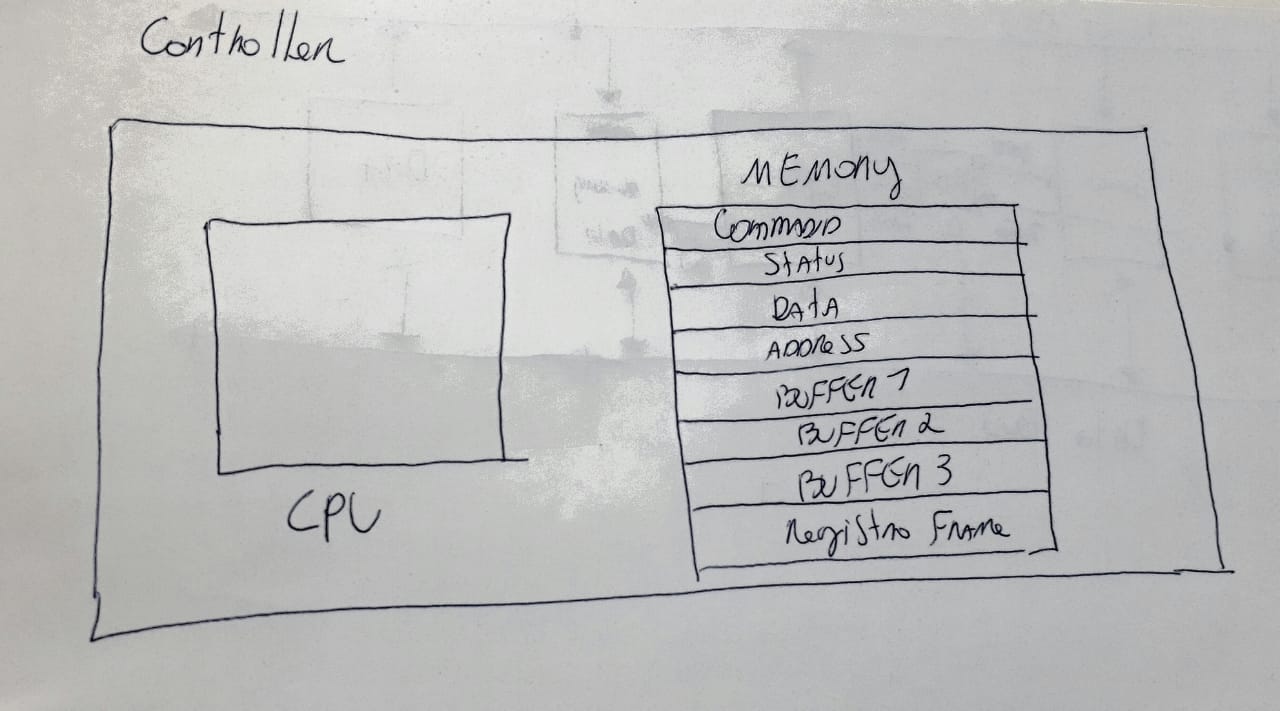 Controller
MEMORY
COMMAND
STATUS
DATA
ADDRESS
BUFFER 1
BUFFER 2
BUFFER 3
Registro FRAME
CPU